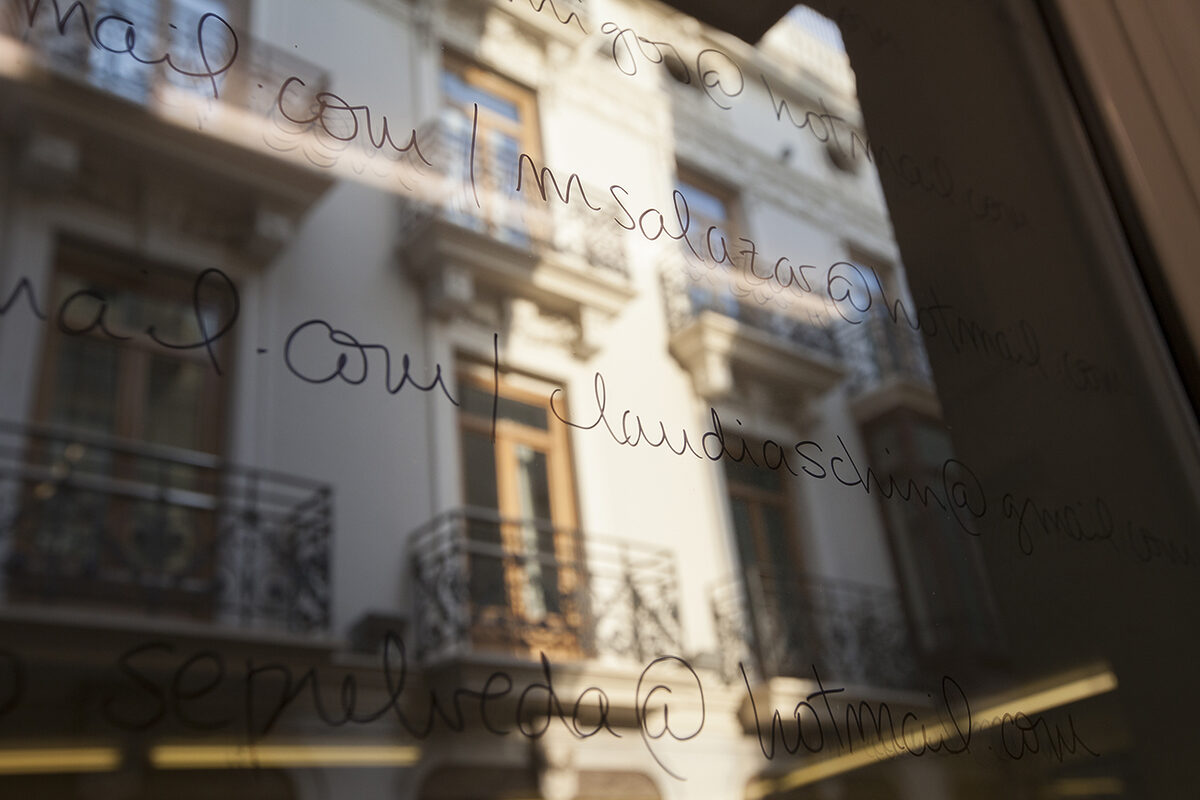 mail.com / msalazar@hotmail.com
migos@hotmail.com
mail.com / claudiaschin@gmail.com
sepulveda@hotmail.com